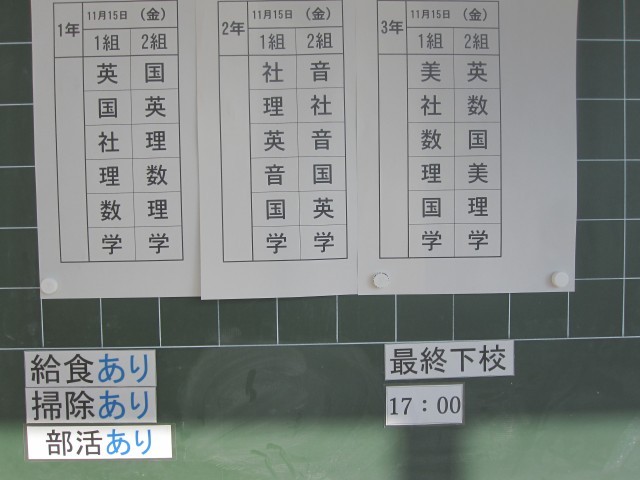 1年 11月15日 (金)
1組 2組
英 国
国 英
社 理
理 数
数 理
学 学
2年 11月15日 (金)
1組 2組
社 音
理 社
英 音
音 国
国 英
学 学
3年 11月15日 (金)
1組 2組
美 英
社 数
数 国
理 美
国 理
学 学
給食あり
掃除あり
部活あり
最終下校
17:00